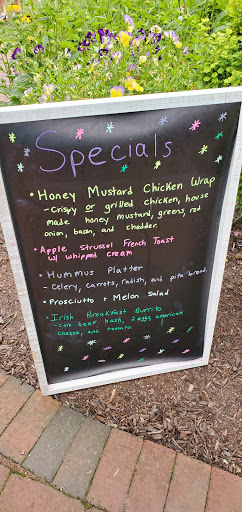 Specials
• Honey Mustard Chicken Wrap
- Crispy or grilled chicken, house
made honey mustard, greens, red
onion, bacon, and cheddar.
• Apple Strussel French Toast
w/ whipped cream
• Hummus Platter
- Celery, carrots, radish, and pita bread.
• Prosciutto + Melon Salad
• Irish Breakfast Burrito
- Corn beef hash, 2 eggs, american
cheese, and